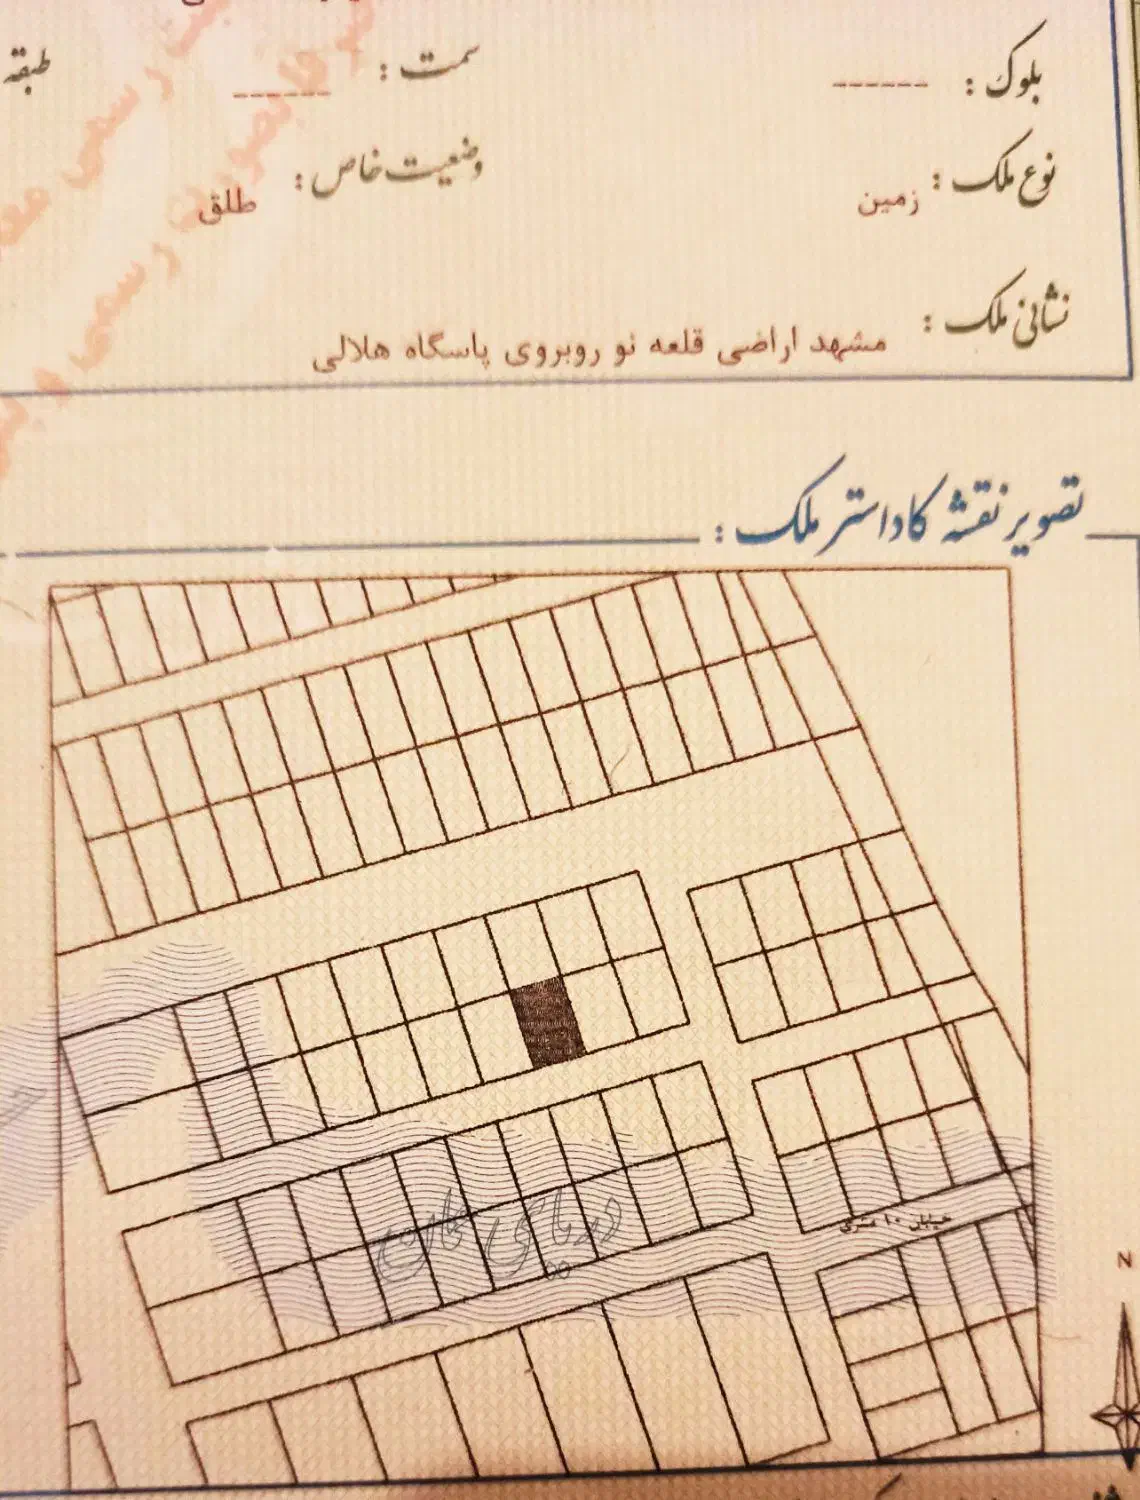 بلوک : ------ سمت : ------ طبقه
نوع ملک : زمین وضعیت خاص : طلق
نشانی ملک : مشهد اراضی قلعه نو روبروی پاسگاه هلالی
تصویر نقشه کاداستر ملک :
دریای
خیابان ۱۰ متری
N